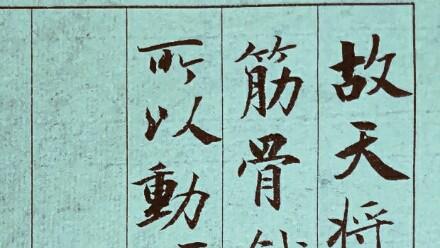 故天將
筋骨
所以動